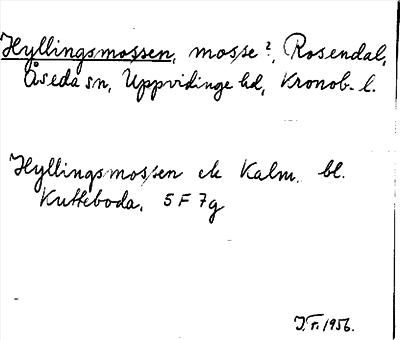 Hyllingsmossen, mosse?, Rosendal,
Åseda sn, Uppvidinge hd, Kronob. l.
Hyllingsmossen ek Kalm. bl.
Kutteboda, 5 F 7g
J. r. 1956.